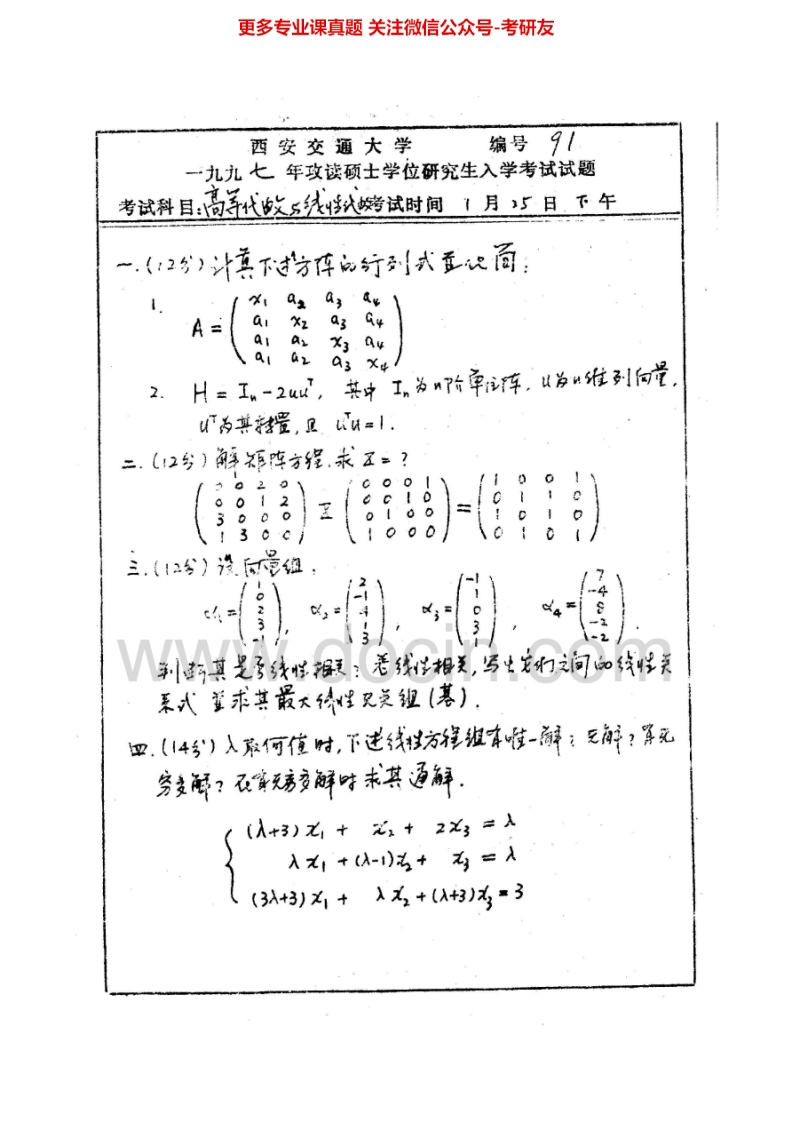 更多专业课真题 关注微信公众号-考研友
西安交通大学 编号 91
一九九七年攻读硕士学位研究生入学考试试题
考试科目:高等代数与线性代数 考试时间 1月25日 下午
一.(12分)计算下述方阵的行列式并化简:
1. A = ( x₁ a₂ a₃ a₄
a₁ x₂ a₃ a₄
a₁ a₂ x₃ a₄
a₁ a₂ a₃ x₄ )
2. H = Iₙ-2uuᵀ, 其中 Iₙ为n阶单位阵, u为n维列向量,
uᵀ为其转置, 且 uᵀu=1.
二.(12分)解矩阵方程.求X=?
( 0 0 2 0   0 0 0 1   1 0 0 1
0 0 1 2   0 0 1 0   0 1 1 0
3 0 0 0 X 0 1 0 0 = 1 0 1 0
1 3 0 0   1 0 0 0   0 1 0 1 )
三.(12分)设向量组:
α₁=(1 0 2 3 -1), α₂=(2 -1 4 1 3), α₃=(-1 1 0 3 1), α₄=(7 -4 8 -2 -2).
www.docin.com
判断其是否线性相关?若线性相关,写出它们之间的线性关
系式 并求其最大线性无关组(基).
四.(14分)λ取何值时,下述线性方程组有唯一解?无解?有无
穷多解?在有无穷多解时求其通解.
(λ+3)x₁ + x₂ + 2x₃ = λ
λx₁ + (λ-1)x₂ + x₃ = λ
(3λ+3)x₁ + λx₂ + (λ+3)x₃ = 3